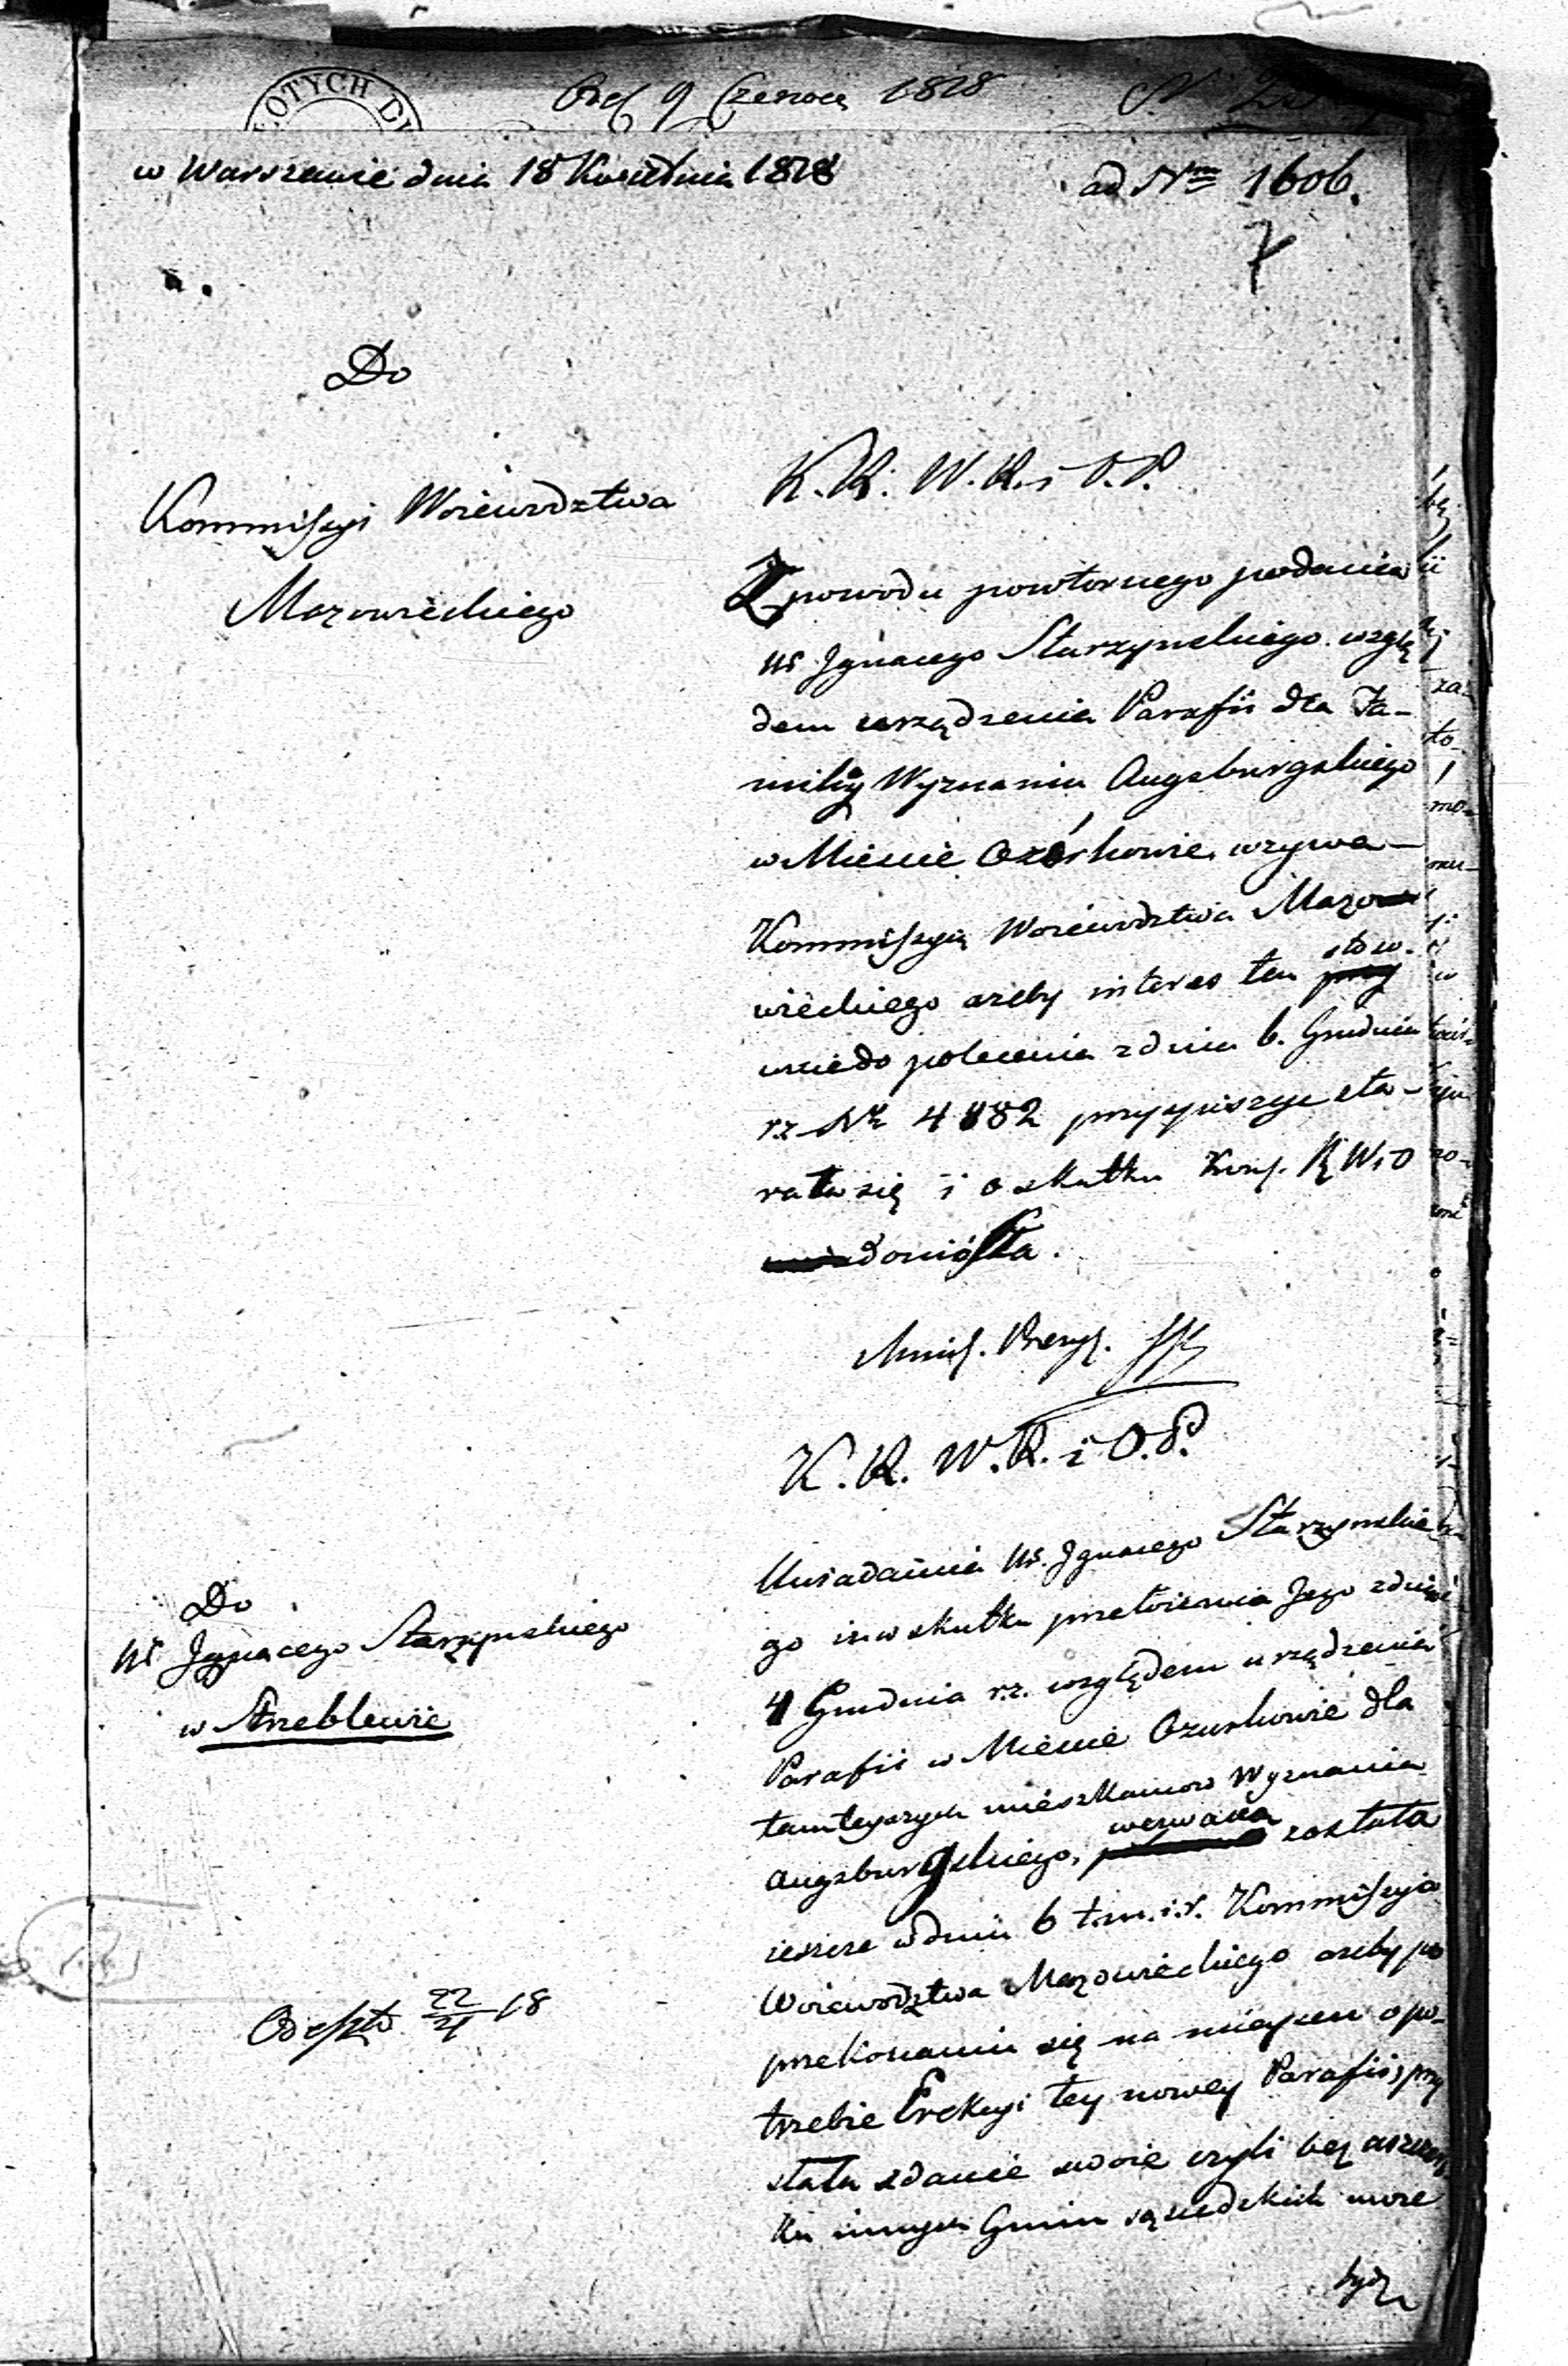 OTYCH
9 Czerwca 1818
w Warszawie dnia 18 Kwietnia 1818
ad Nrm 1606.
7
Do
Kommissyi Woiewodztwa
Mazowieckiego
K. R. W. R. i O. P.
Z powodu powtornego podania
Ur Ignacego Starzynskiego wzglę
dem urządzenia Parafii dla Fa-
milÿ Wyznania Augsburgskiego
w Miescie Ozórkowie, wzywa
Kommissyią Woiewodztwa Mazo
wieckiego azeby interes ten stosow.
unie do polecenia z dnia 6. Grudnia
r.z. Nr 4882 przyspieszyć sta-
rała się i o skutku R W i O
doniosła.
Minis. Prezyd.
K. R. W. R. i O. P.
Uwiadamia Ur. Ignacego Starzynskie
go iz w skutku przełożenia Jego z dnia
4 Grudnia r.z. względem urządzenia
Parafii w Miescie Ozurkowie dla
tamteyszych mieszkancow Wyznania
Augsburgskiego, wezwana została
ieszcze w dniu 6 t.m. i r. Kommissyia
Woiewodztwa Mazowieckiego azeby po
przekonaniu się na mieyscu o po-
trzebie Erekcyi tey nowey Parafii, przy
słała zdanie swoie czyli bez
ku innych Gmin sąsiedzkich moze
bydz
Do
Ur Ignacego Starzynskiego
w Strzeblewie
Odeszło 22/4 18